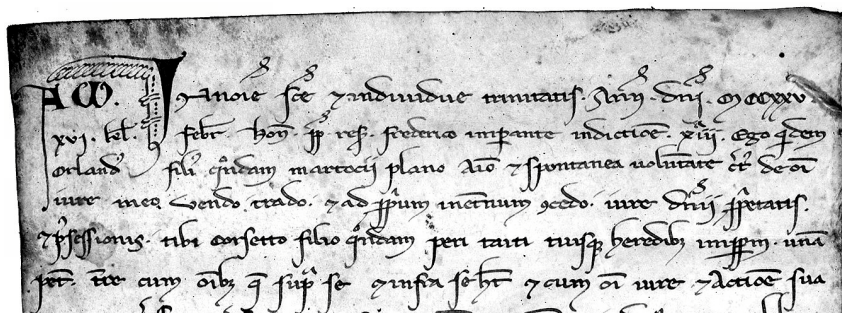 A ω. In noīe sc̄e ⁊ individue trinitatis. Ann̄. dn̄i. MCCXXV.
xvi. kl̄. febr̄. hon̄. pp̄ res̄. frederico imꝑante indictiōe. xiiii. Ego qͥdem
Orland' fili' qͦndam martocii plano aīo ⁊ spontanea volūtate cr̄ de oī
iure meo vendo. trado. ⁊ ad pp̄ium ꝯcedo. iure dn̄ii ꝓpͥetatis.
⁊ possessionis. tibi corsetto filio qͦndam peri tuisqꝫ heredibꝫ imꝑpm. unā
pet̄. tr̄re cum oībꝫ q̄ supͣ se ⁊ infra se hn̄t ⁊ cum oī iure ⁊ actiōe sua